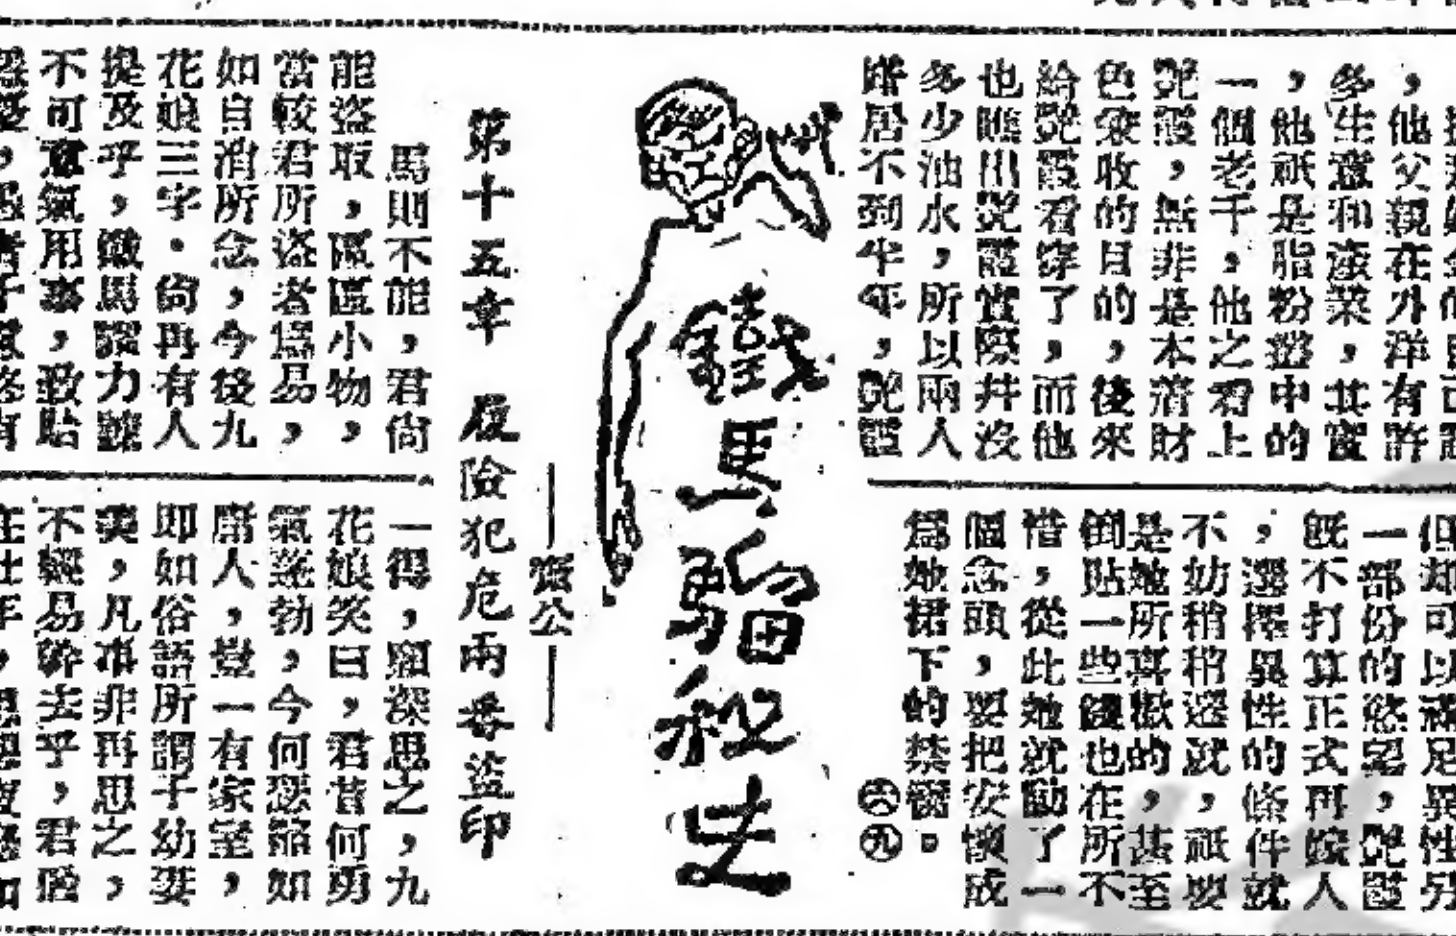 ,他父親在外洋有許
多生意和產業,其實
,他祇是脂粉叢中的
一個老千,他之看上
艷霞,無非是本着財
色兼收的目的,後來
給艷霞看穿了,而他
也瞧出艷霞實際井沒
多少油水,所以兩人
居不到半年,艷霞
但却可以滿足異性另
一部份的慾望,艷霞
既不打算正式再嫁人
,選擇異性的條件就
不妨稍稍遷就,祇要
是她所喜歡的,甚至
倒貼一些錢也在所不
惜,從此她就動了一
個念頭,要把安懷成
爲她裙下的禁臠。
㊅㊈
鐵馬騮秘史
公
第十五章 履險犯危兩番盜印
馬則不能,君尙
能盜取,區區小物,
當較君所盜者爲易,
如自消所念,今後九
花娘三字.尙再有人
提及乎,鐵馬騮力
不可意氣用事,致貽
一得,願深思之,九
花娘笑曰,君昔何勇
氣蓬勃,今何瑟縮如
庸人,豈一有家室,
即如俗語所謂子幼妻
美,凡事非再思之,
不輕易幹去乎,君